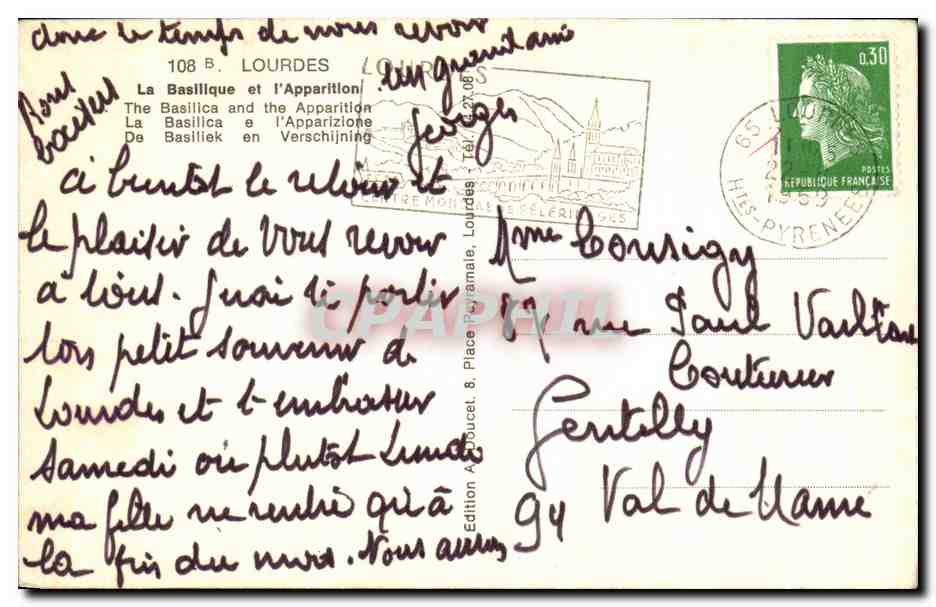 donc le temps de nous revoir
108 B. LOURDES
La Basilique et l'Apparition
The Basilica and the Apparition
La Basilica e l'Apparizione
De Basiliek en Verschijning
Bons
baisers
Georges
LOURDES
CENTRE MONDIAL DE PÈLERINAGES
0,30
POSTES
RÉPUBLIQUE FRANÇAISE
65 LOURDES
1969
HTES-PYRENEES
A bientot le retour et
le plaisir de vous revoir
à tous. J'irai te porter
ton petit souvenir de
Lourdes et t'embrasser
Samedi ou plutot Lundi
ma fille ne rentre qu'à
la fin du mois. Nous aurons
Edition A. Doucet. 8, Place Peyramale, Lourdes - Tél. 27.08
Mme Cousigy
57 rue Paul Vaillant
Couturier
Gentilly
94 Val de Marne
CPAPHIL